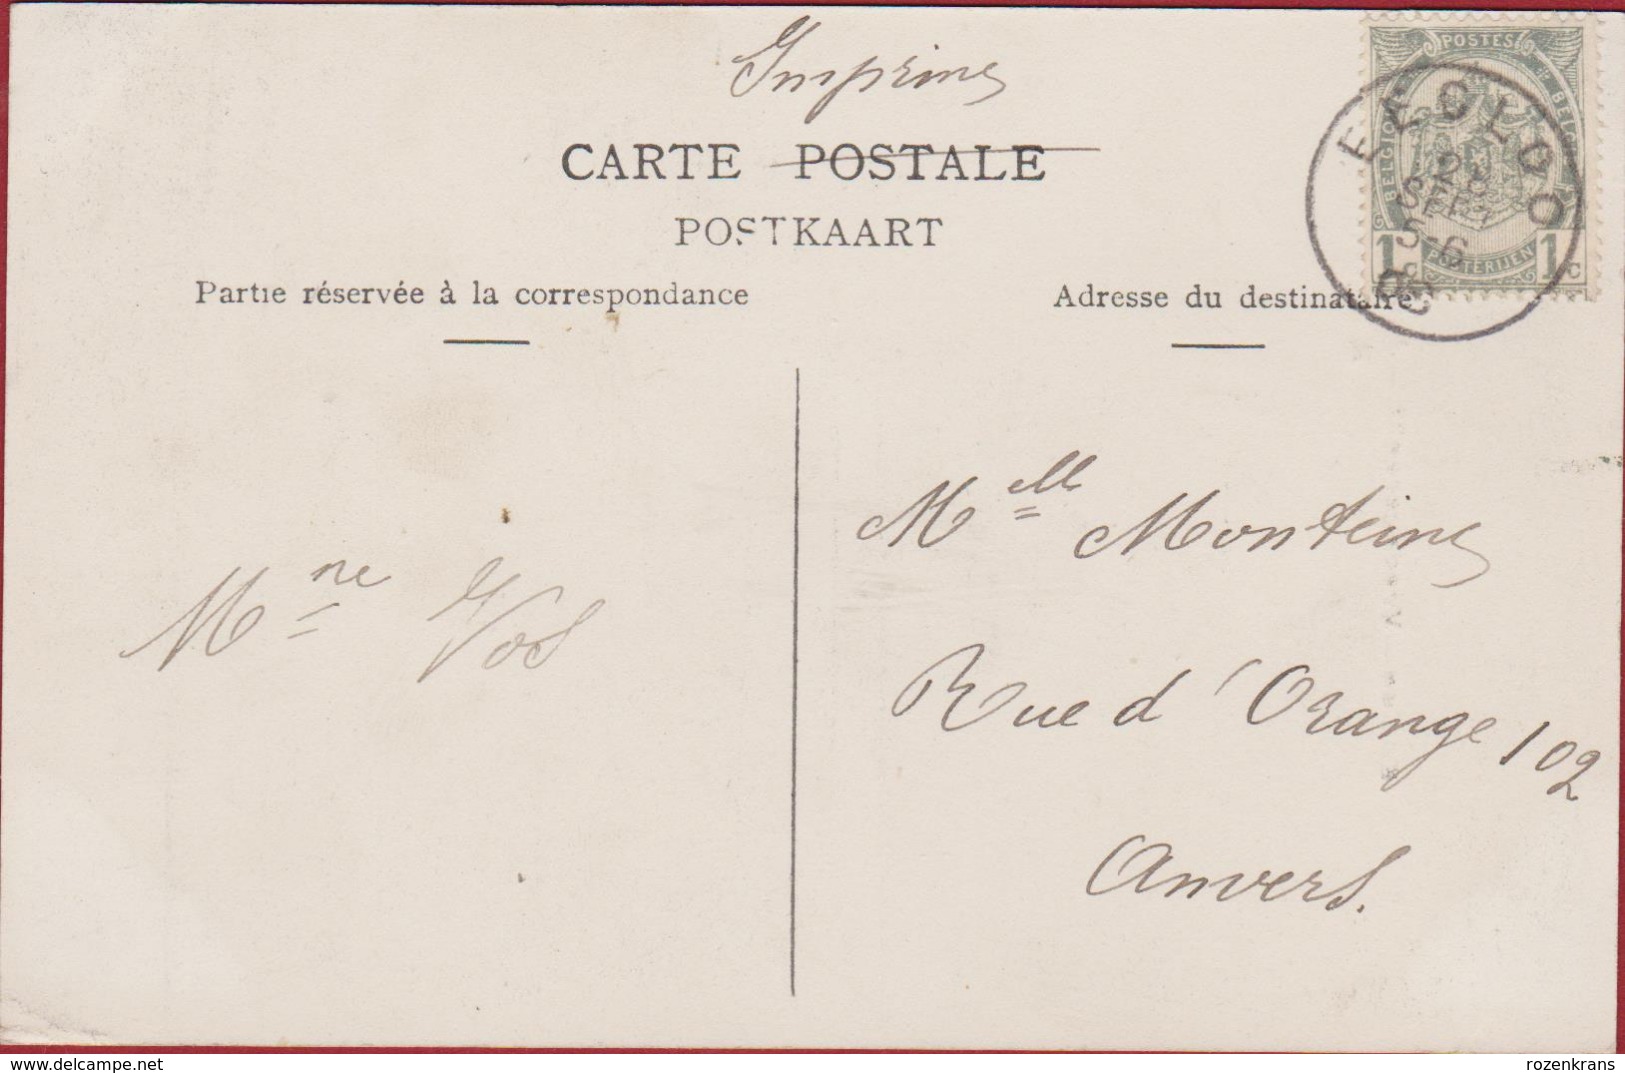 Imprimé
CARTE POSTALE
POSTKAART
Partie réservée à la correspondance
Adresse du destinataire
POSTES
BELGIQUE
BELGIË
POSTERIJEN
1c
1c
EECLOO
SEPT
5-6
08
Melle Monteine
Mme Vos
Rue d'Orange 102
Anvers.
delcampe.net
rozenkrans